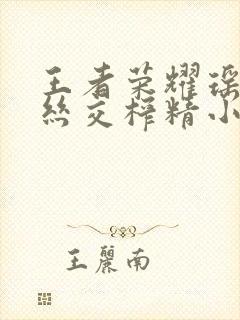 王者荣耀瑶
丝交榨精小
王丽南